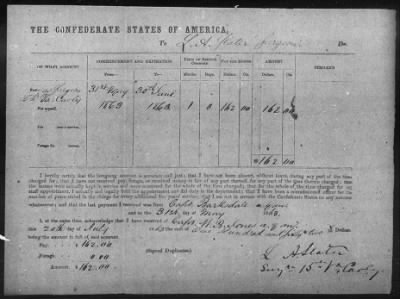 THE CONFEDERATE STATES OF AMERICA,
To L. A. Slater Surgeon Dr.
ON WHAT ACCOUNT. COMMENCEMENT AND EXPIRATION TERM OF SERVICE CHARGED PAY PER MONTH AMOUNT REMARKS
From— To— Months. Days. Dollars. Cts. Dollars. Cts.
Pay— as Surgeon 31st May 30th June
15 Va. Cavly 1863 1863 1 0 162 00 162 00
For myself,
For
Forage for
$162 00
I hereby certify that the foregoing account is accurate and just; that I have not been absent, without leave, during any part of the time
charged for; that I have not received pay, forage, or received money in lieu of any part thereof, for any part of the time therein charged; that
the horses were actually kept in service and were mustered for the whole of the time charged; that for the whole of the time charged for my
staff appointment, I actually and legally held the appointment and did duty in the department; that I have been a commissioned officer for the
number of years stated in the charge for every additional five years' service; that I am not in arrears with the Confederate States on any account
whatsoever; and that the last payment I received was from Capt. Barksdale
and to the 31st day of May 1863.
I, at the same time, acknowledge that I have received of Capt. W. B. Jones
this 20th day of July 1863 the sum of One hundred and sixty two Dollars,
being the amount in full of said account.
Pay— 162.00
Forage—
Amount— 162.00
(Signed Duplicates)
L A Slater
Surgn 15th Va Cavly